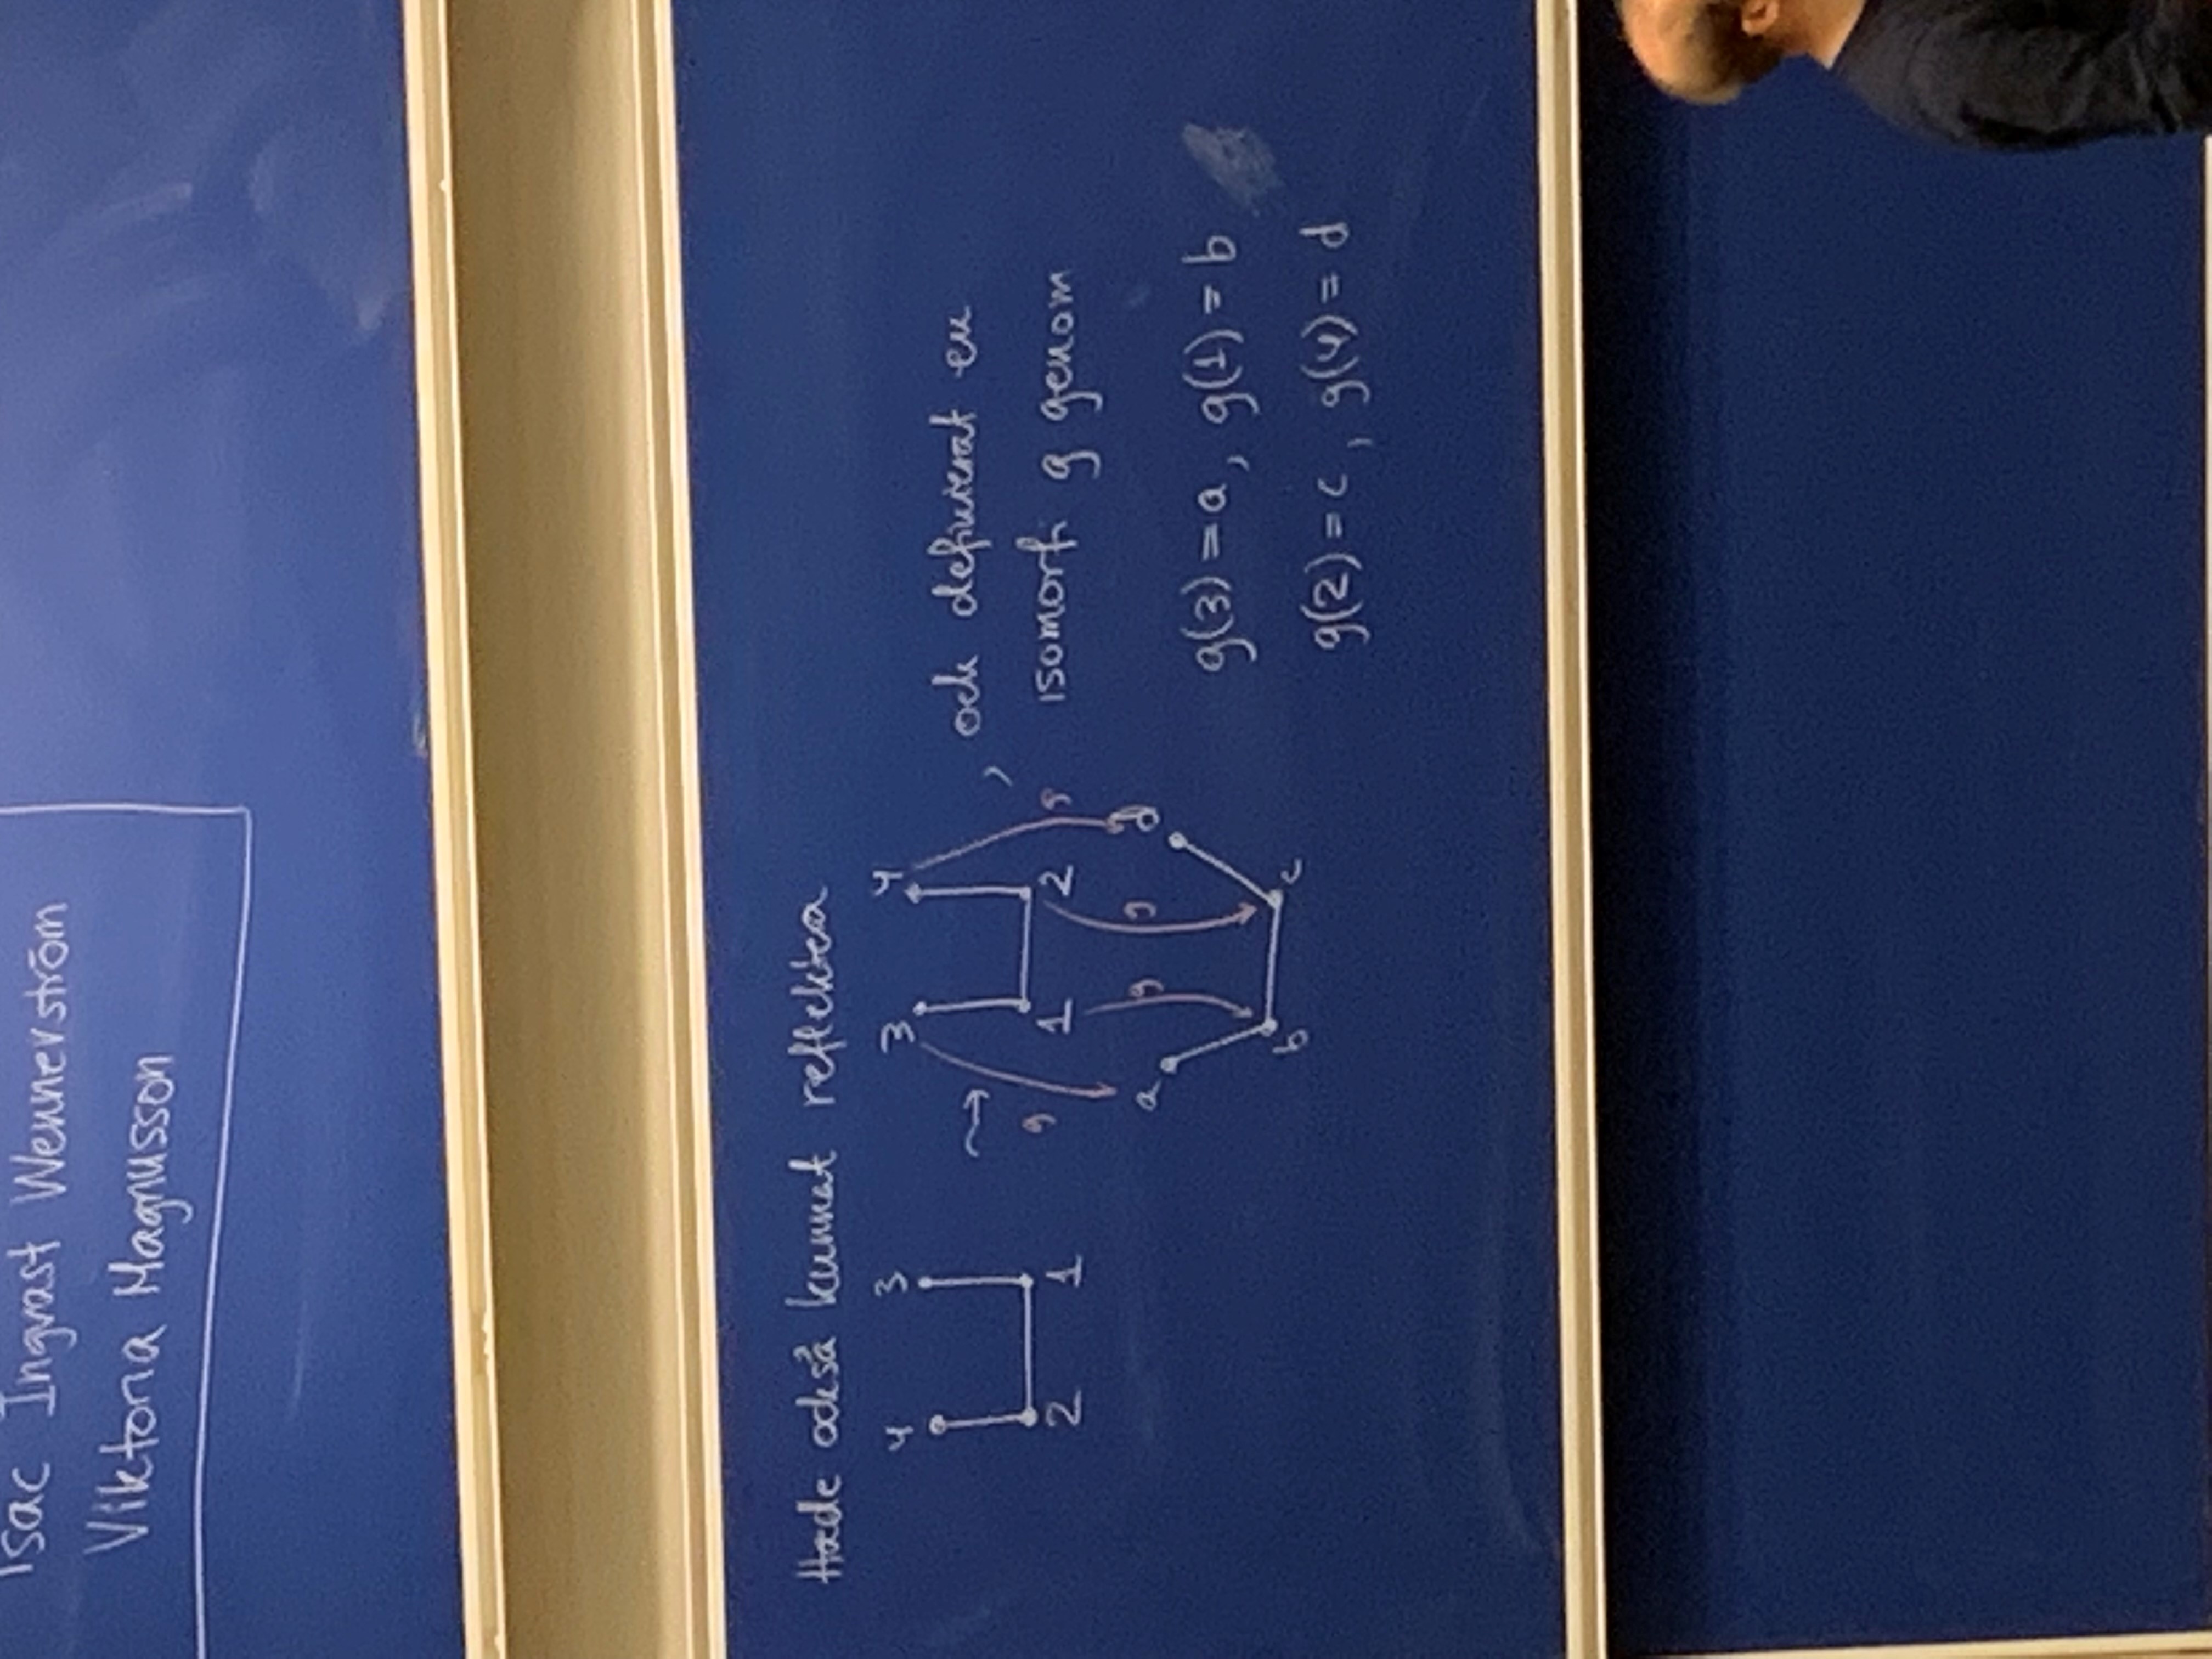 Isac Ingvast Wennerström
Viktoria Magnusson
Hade också kunnat reflektera
4 3
2 1
⇝
3 4
1 2
g g g g
a d
b c
, och definierat en
isomorfi g genom
g(3) = a, g(1) = b
g(2) = c, g(4) = d